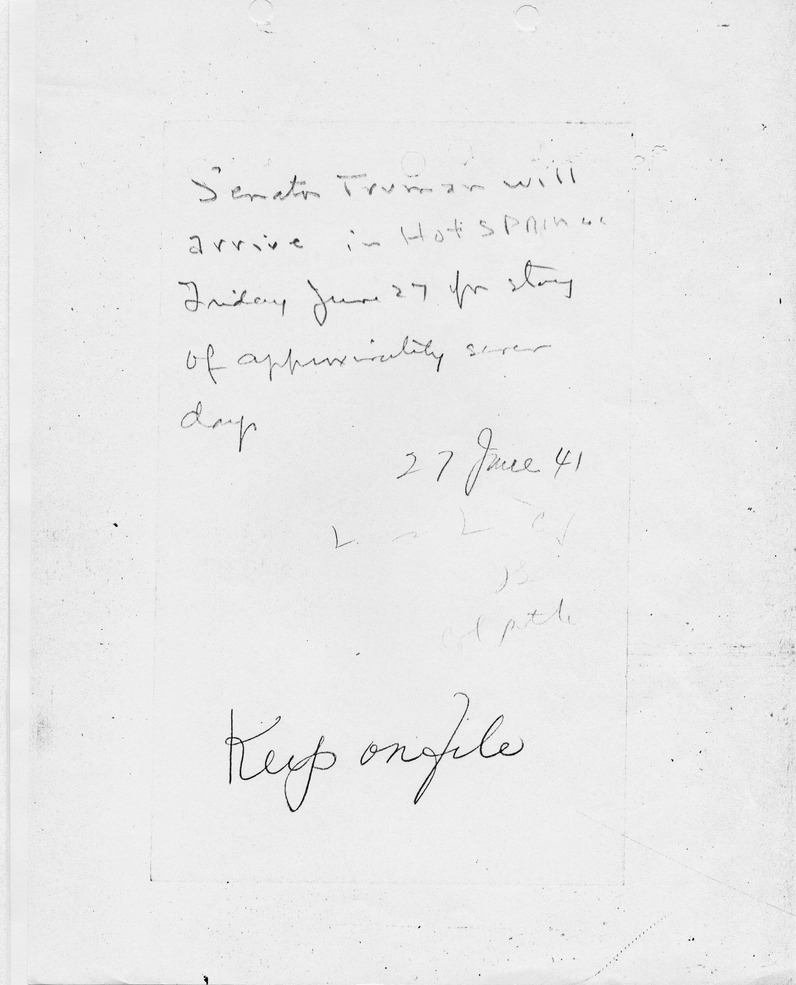 Senator Truman will
arrive in Hot SPRINGS
Friday June 27 for stay
of approximately seven
days
27 June 41
Keep on file